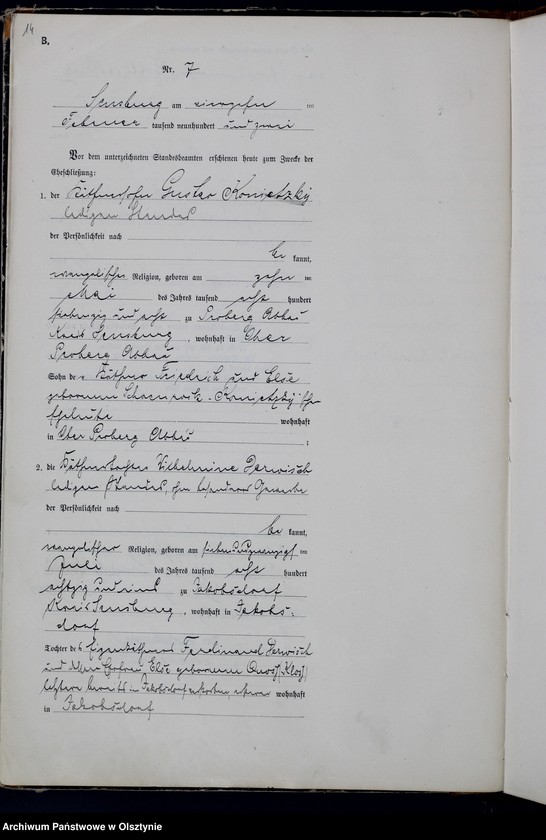 14
B.
Nr. 7
Sensburg am vierzehn ten
Februar tausend neunhundert und zwei
Vor dem unterzeichneten Standesbeamten erschienen heute zum Zwecke der
Eheschließung:
1. der Käthnersohn Gustav Konietzky
ledigen Standes
der Persönlichkeit nach
be kannt,
evangelischer Religion, geboren am zehn ten
Mai des Jahres tausend acht hundert
siebenzig und acht zu Proberg Abbau
Kreis Sensburg, wohnhaft in Ober
Proberg Abbau
Sohn de Käthner Friedrich und Else
geborenen - Konietzky'schen
Eheleute wohnhaft
in Ober Proberg Abbau ;
2. die Käthnertochter Wilhelmine Derwisch
ledigen Standes, ohne besonderes Gewerbe
der Persönlichkeit nach
be kannt,
evangelischer Religion, geboren am siebenundzwanzigs ten
Juli des Jahres tausend acht hundert
achtzig und eins zu Jakobsdorf
Kreis Sensburg, wohnhaft in Jakobs-
dorf
Tochter des Eigenkäthners Ferdinand Derwisch
und dessen Ehefrau Else geborenen
letztere bereits in Jakobsdorf verstorben, ersterer wohnhaft
in Jakobsdorf
Archiwum Państwowe w Olsztynie